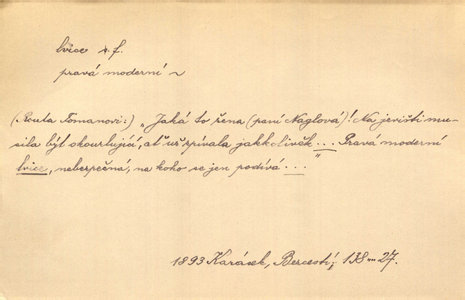 lvice s. f.
pravá moderní ~
(Routa Tomanovi:) „Jaká to žena (paní Naglová)! Na jevišti mu-
sila být okouzlující, ať už zpívala jakkolivěk ... Pravá moderní
lvice, nebezpečná, na koho se jen podívá ..."
1893 Karásek, Bezcestí, 138 27.